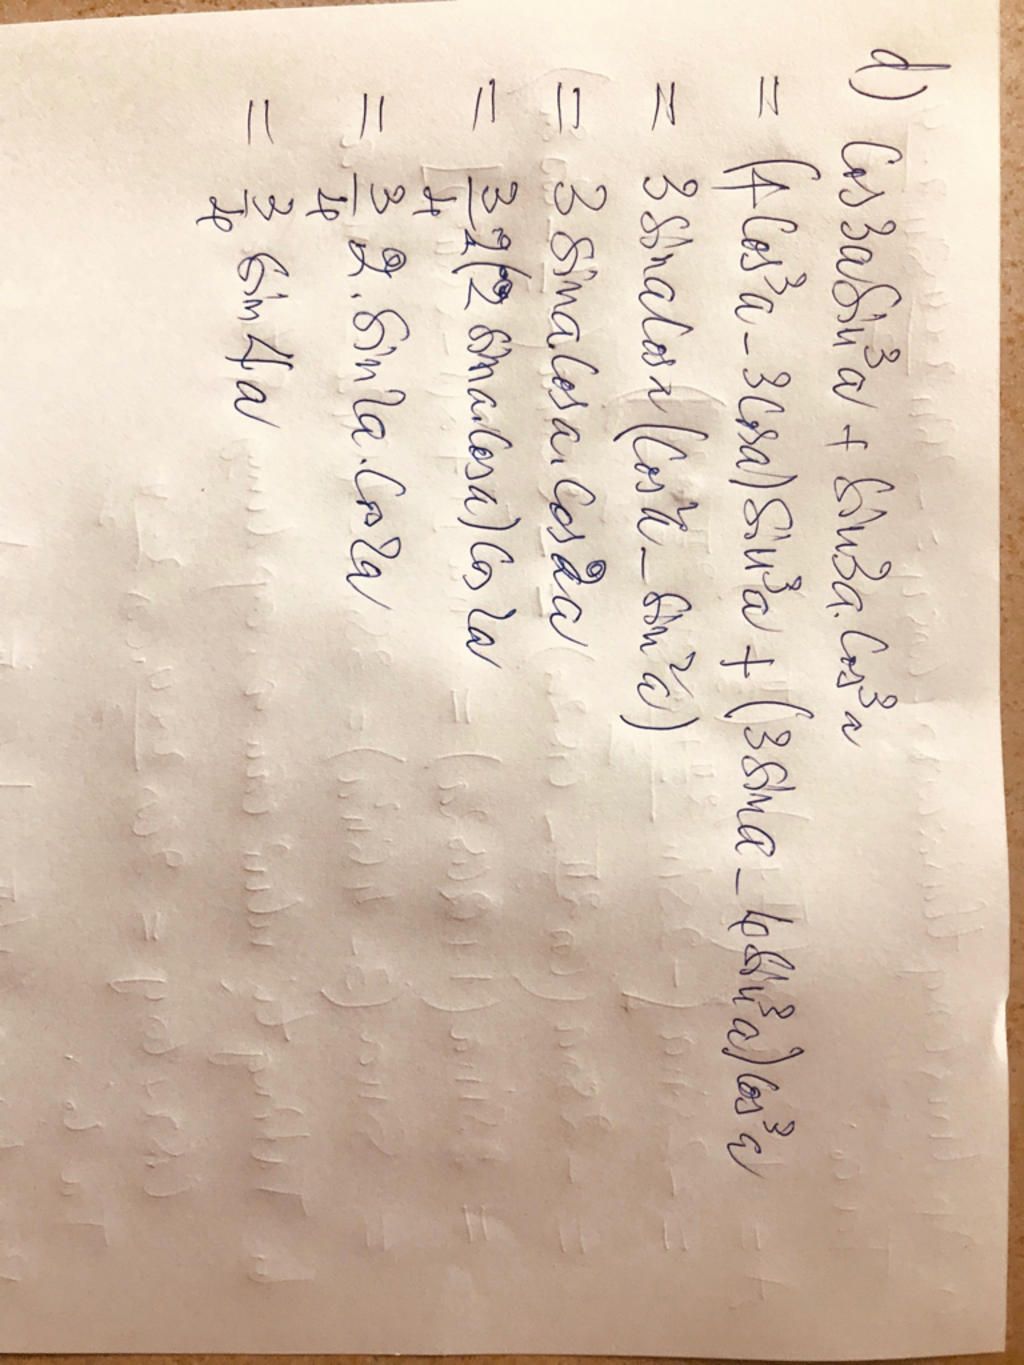 d) Cos 3a sin³a + sin3a.Cos³a
= (4Cos³a - 3Cosa) sin³a + (3sina - 4sin³a) Cos³a
= 3 sina Cosa (Cos²a - sin²a)
= 3 sina Cosa. Cos 2a
= 3/4 2(2 sina.Cosa) Cos 2a
= 3/4 2. sin 2a. Cos 2a
= 3/4 sin 4a